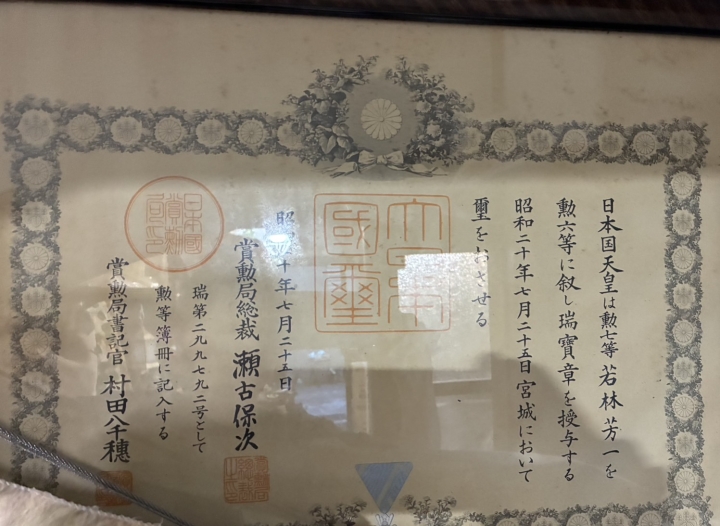 日本国天皇は勲七等若林芳一を
勲六等に叙し瑞寶章を授与する
昭和二十年七月二十五日宮城において
璽をおさせる
大日本
國璽
十年七月二十五日
賞勲局総裁 瀬古保次
瑞第二九九七九二号として
勲等簿冊に記入する
賞勲局書記官 村田八千穂